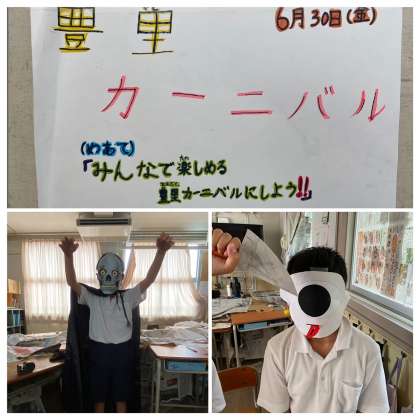 豊里
6月30日(金)
カーニバル
(めあて)
「みんなで楽しめる
豊里カーニバルにしよう!!」